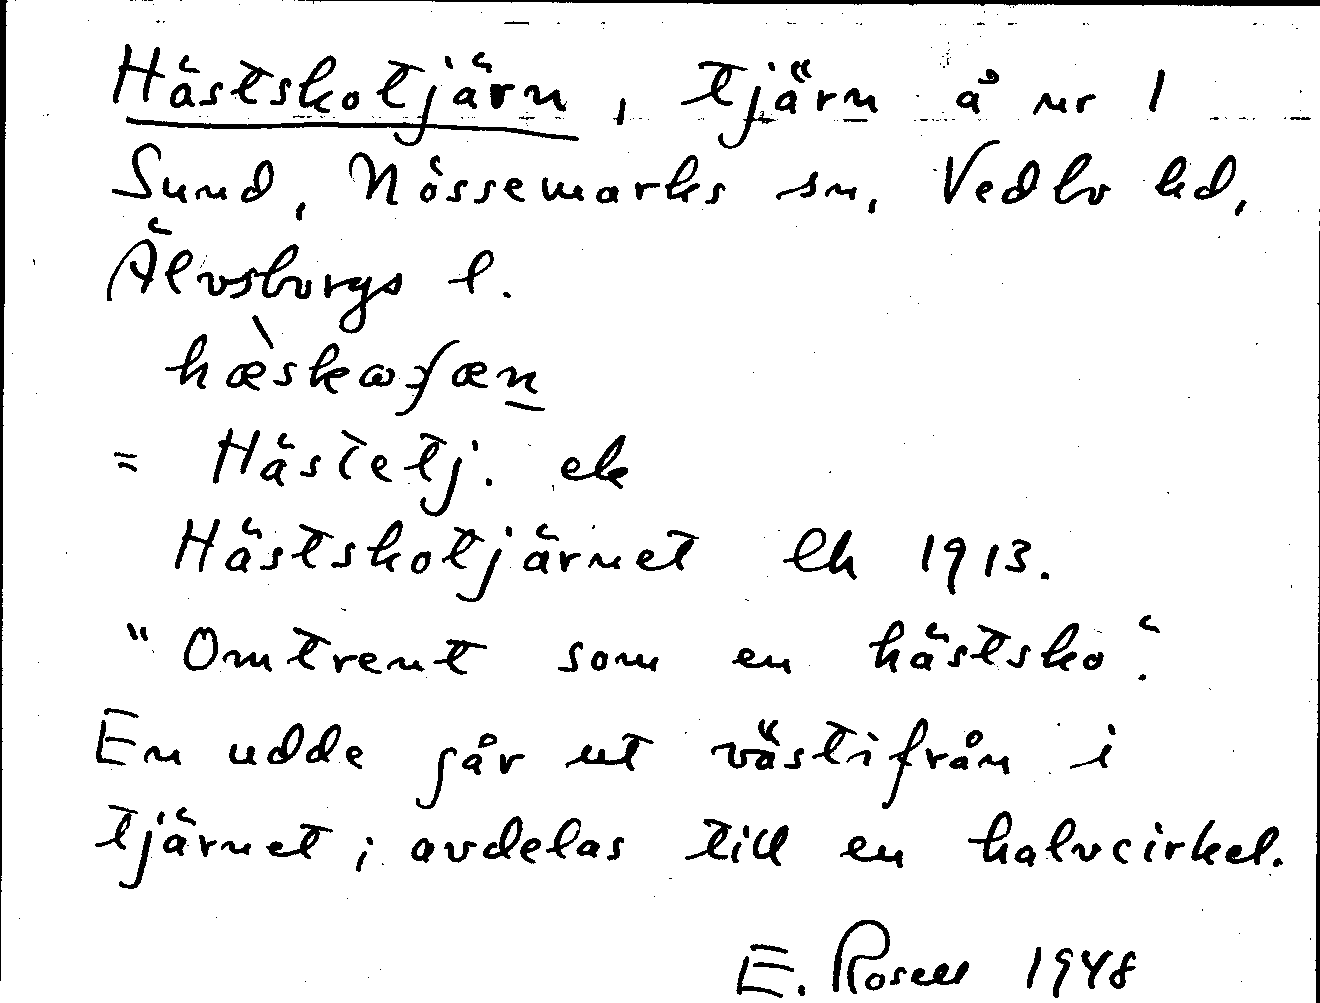 Hästskotjärn, tjärn å nr 1
Sund, Nössemarks sn, Vedbo hd,
Älvsborgs l.
= Hästetj. ek
Hästskotjärnet Ek 1913.
"Omtrent som en hästsko".
En udde går ut västifrån i
tjärnet; avdelas till en halvcirkel.
E. Rosell 1948